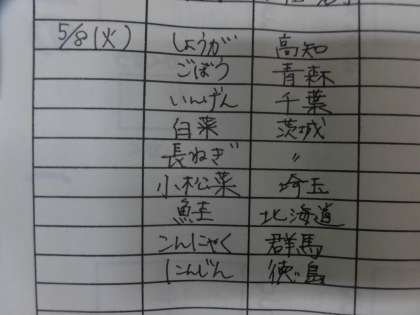 5/8(火) しょうが 高知
ごぼう 青森
いんげん 千葉
白菜 茨城
長ねぎ 〃
小松菜 埼玉
鮭 北海道
こんにゃく 群馬
にんじん 徳島